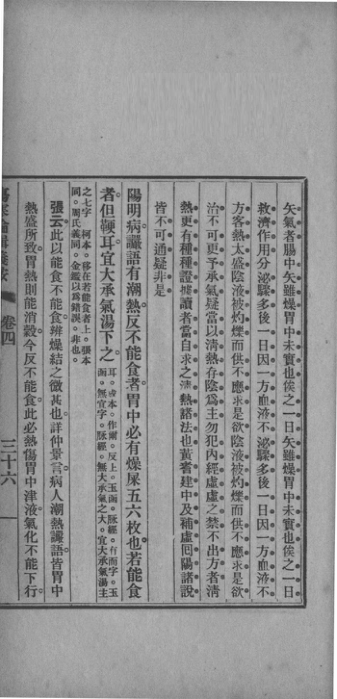 矢氣者腸中矢雖燥胃中未實也俟之一日矢雖燥胃中未實也俟之一日
救濟作用分泌驟多後一日因一方血液不泌驟多後一日因一方血液不
方客熱太盛陰液被灼爍而供不應求是欲陰液被灼爍而供不應求是欲
治不可更予承氣疑當以清熱存陰爲主勿犯內經虛虛之禁不出方者淸
熱更有種種證據讀者當自求之清熱諸法也黃耆建中及補虛囘陽諸說
皆不可通疑非是
陽明病譫語有潮熱反不能食者胃中必有燥屎五六枚也若能食
者但鞕耳宜大承氣湯下之耳。本。作爾。反上。玉函。脉經。有而字。玉函。無宜字。脉經。無大承氣之大。宜大承氣湯主
之七字 柯本。移在若能食者上。張本同。周氏義同。金鑑以爲錯誤。非也。
張云此以能食不能食辨燥結之微甚也詳仲景言病人潮熱譫語皆胃中
熱盛所致胃熱則能消穀今反不能食此必熱傷胃中津液氣化不能下行
卷四
三十六